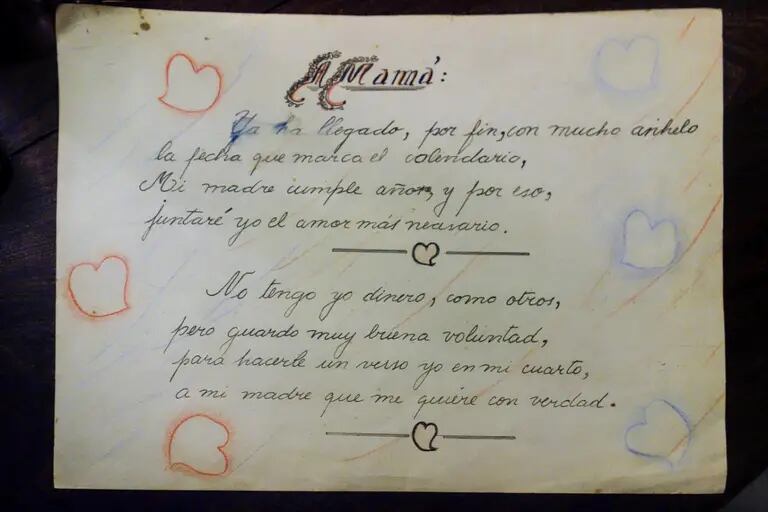 A Mamá:
Ya ha llegado, por fin, con mucho anhelo
la fecha que marca el calendario,
Mi madre cumple años, y por eso,
juntaré yo el amor más necesario.
No tengo yo dinero, como otros,
pero guardo muy buena voluntad,
para hacerle un verso yo en mi cuarto,
a mi madre que me quiere con verdad.